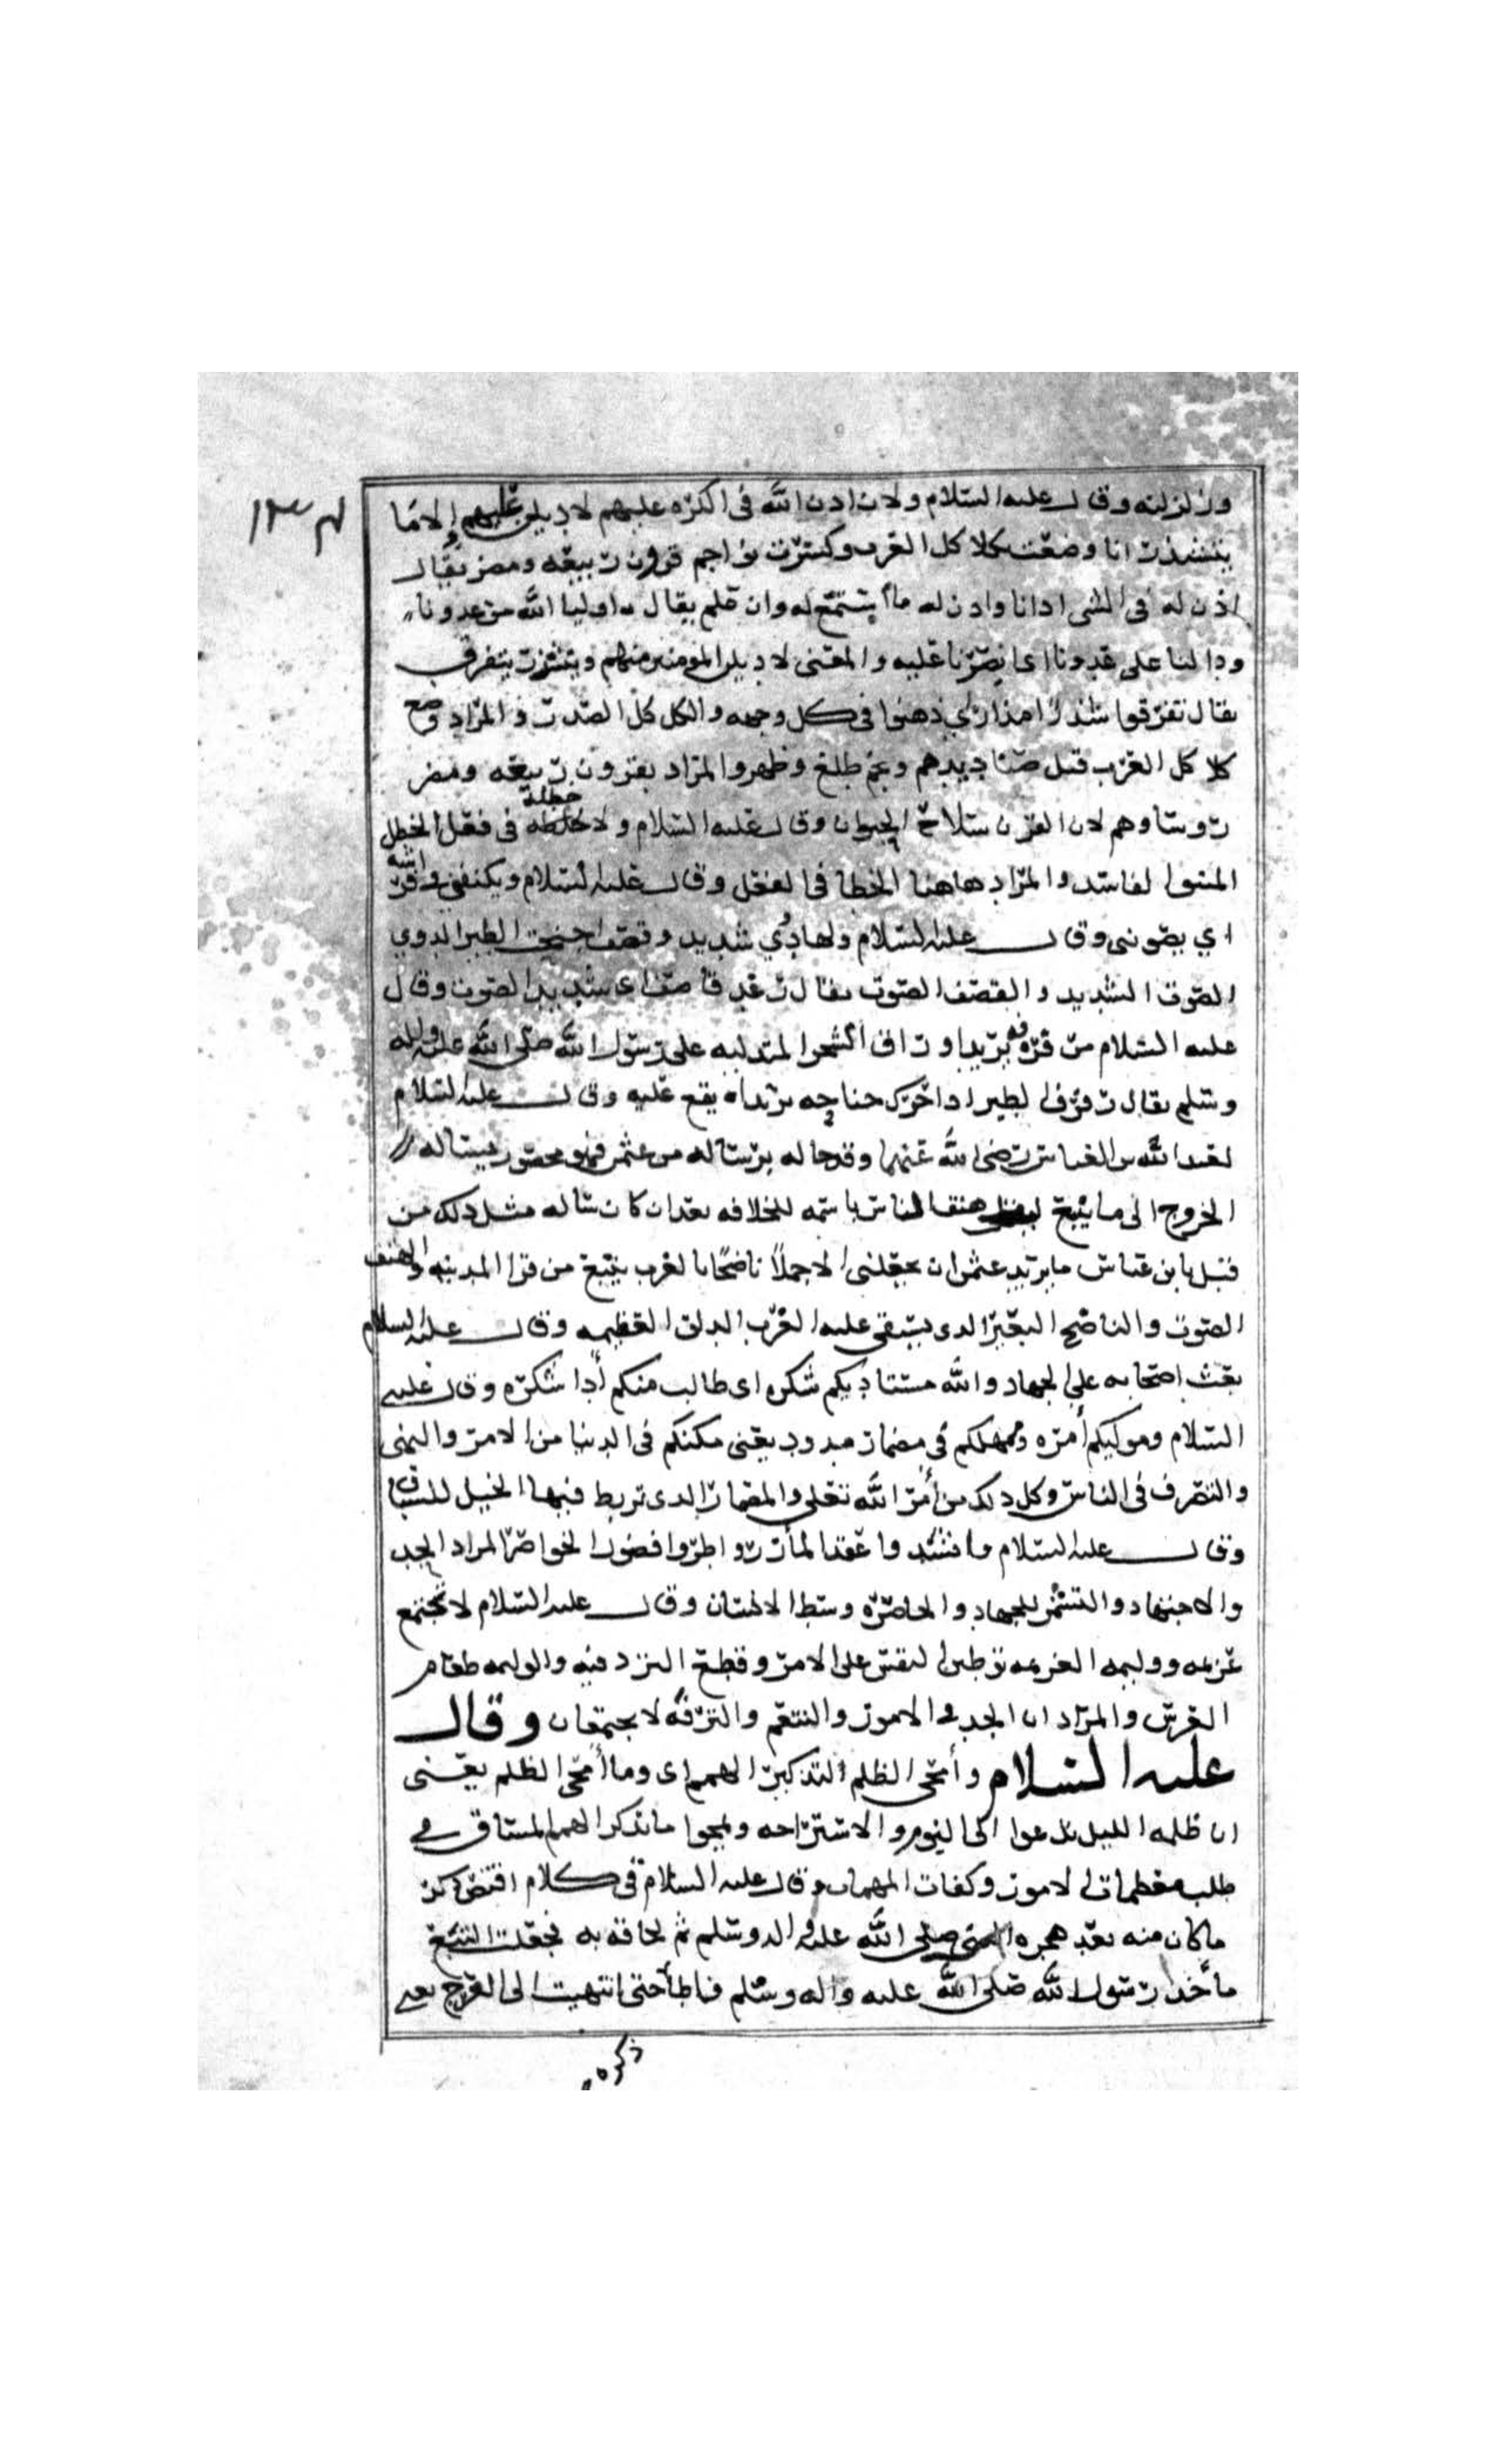 ١٣٤
وزلزلته وقال عليه السلام ولان اذن الله في الكره عليهم لاديلن عليهم الا ما
يتشذر انا وضعت بكلا كل العرب وكسرت نواجم قرون ربيعه ومضر يقال
اذن له في الشى اذانا واذن له ما استمع له وان علم يقال اوليا الله من عدونا
ودالنا على عدونا اى نصرنا عليه والمعنى لاديلن المومنين منهم ويتشذر يتفرق
يقال تفرقوا شذر مذر اي ذهبوا في كل وجه والكل كل الصدر والمراد وضع
كلا كل العرب قتل صناديدهم ونجم طلع وظهر والمراد بقرون ربيعه ومضر
روساوهم لان القرن سلاح الحيوان وقال عليه السلام ولا خطلة في فعل الخطل
المنطق الفاسد والمراد هاهنا الخطا في الفعل وقال عليه السلام ويكنفني فراشه
اي يصونى وقال عليه السلام ولها دوي شديد وقصف اجنحة الطير الدوي
الصوت الشديد والقصف الصوت يقال رعد قاصف اى شديد الصوت وقال
عليه السلام من رفرفه يريد اوراق الشجر المتدليه على رسول الله صلى الله عليه واله
وسلم يقال رفرف الطير اذا حرك جناحيه يريد ان يقع عليه وقال عليه السلام
لعبد الله بن العباس رضى الله عنهما وقد جاله برساله من عثمن فهو محصور يساله
الخروج الى ماينبع ليقل هتف الناس باسمه للخلافه بعد ان كان ساله مثل ذلك من
قبل يا بن عباس ما يريد عثمن ان يجعلنى الا جملا ناضحا بالغرب ينبع من قرا المدينه والهتف
الصوت والناضح البعير الذى يستقى عليه الغرب الدلو العظيمه وقال عليه السلام
بحث اصحابه على الجهاد والله مستاديكم شكره اى طالب منكم أدا شكره وقال عليه
السلام وموليكم أمره وممهلكم في مضمار ممدود يعنى مكنكم في الدنيا من الامر والنهى
والتصرف في الناس وكل ذلك من أمر الله تعلى والمضمار الذى تربط فيها الخيل للسباق
وقال عليه السلام وا عقد المأزر واطووا فضول الخواصر المراد الجد
والاجتهاد والتشمر للجهاد والخاصره وسط الانسان وقال عليه السلام لا تجتمع
عزيمه ووليمه العزيمه توطين النفس على الامر وقطع التردد فيه والوليمه طعام
العرس والمراد ان الجد في الامور والتنعم والترفه لا يجتمعان وقال
عليه السلام وأمحى الظلم لتذاكير الهمم اى وما أمحى الظلم يعنى
ان ظلمه الليل تدعوا الى النوم والاستراحه ويمحوا ما تذكر الهمم المستاق في
طلب معظمات الامور وكفات المهمات وقال عليه السلام في كلام اقتص ذكر
ما كان منه بعد هجره النبى صلى الله عليه واله وسلم ثم لحاقه به فجعلت اتتبع
مأخذ رسول الله صلى الله عليه واله وسلم فاطأ حتى انتهيت الى العرج يعى
ذكره